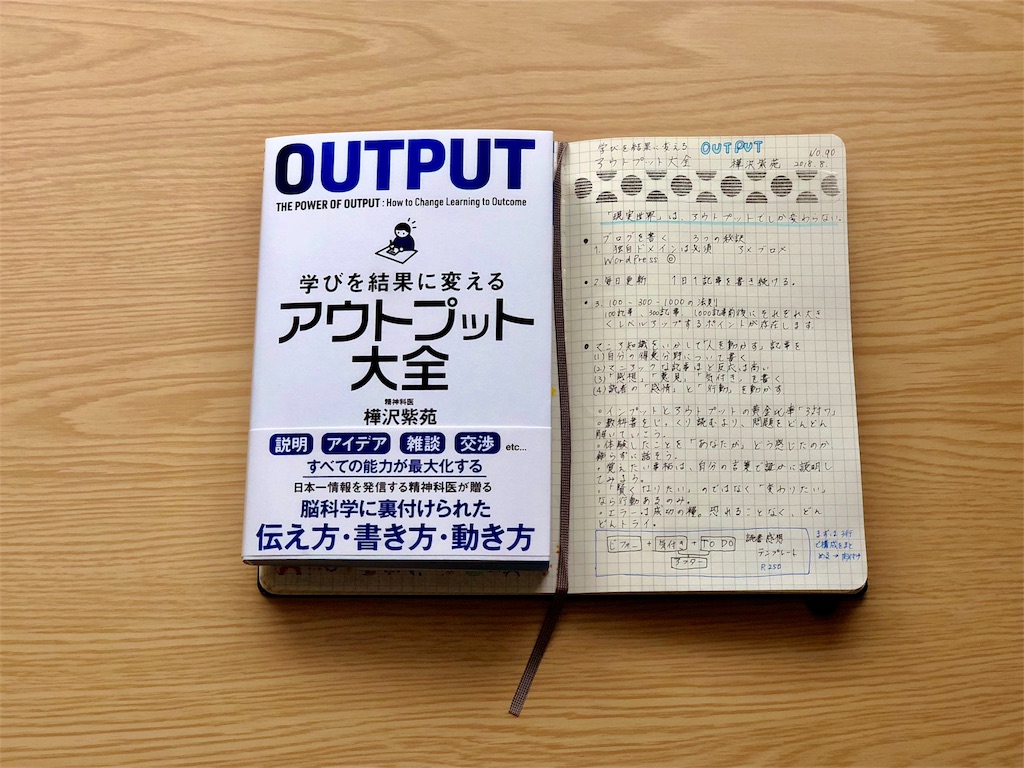 OUTPUT
THE POWER OF OUTPUT : How to Change Learning to Outcome
学びを結果に変える
アウトプット
大全
精神科医
樺沢紫苑
説明 アイデア 雑談 交渉 etc...
すべての能力が最大化する
日本一情報を発信する精神科医が贈る
脳科学に裏付けられた
伝え方・書き方・動き方
学びを結果に変える OUTPUT No.90
アウトプット大全 樺沢紫苑 2018.8.
「現実世界」は、アウトプットでしか変わらない。
● ブログを書く 3つの秘訣
1. 独自ドメインは必須
WordPress ◎
● 2.毎日更新 1日1記事を書き続ける。
● 3. 100-300-1000の法則
100記事、300記事、1000記事前後にそれぞれ大き
くレベルアップするポイントが存在します
● マニア知識をいかして「人を動かす」記事を
(1)自分の得意分野について書く
(2)マニアックな記事ほど反応は高い
(3)「感想」「意見」「気付き」を書く
(4)読者の「感情」と「行動」を動かす
○インプットとアウトプットの黄金比率「3対7」
・教科書をじっくり読むより、問題をどんどん
解いていこう。
・体験したことを「あなたが」どう感じたのか
飾らずに話そう。
・覚えたい事柄は、自分の言葉で誰かに説明し
てみよう。
・「賢くなりたい」のではなく「変わりたい」
なら行動あるのみ。
・エラーは成功の種。恐れることなく、どん
どんトライ。
ビフォー + 気付き + TO DO 読書感想
アフター テンプレート
P.250
まずは3行
で構成をまと
める→肉付け